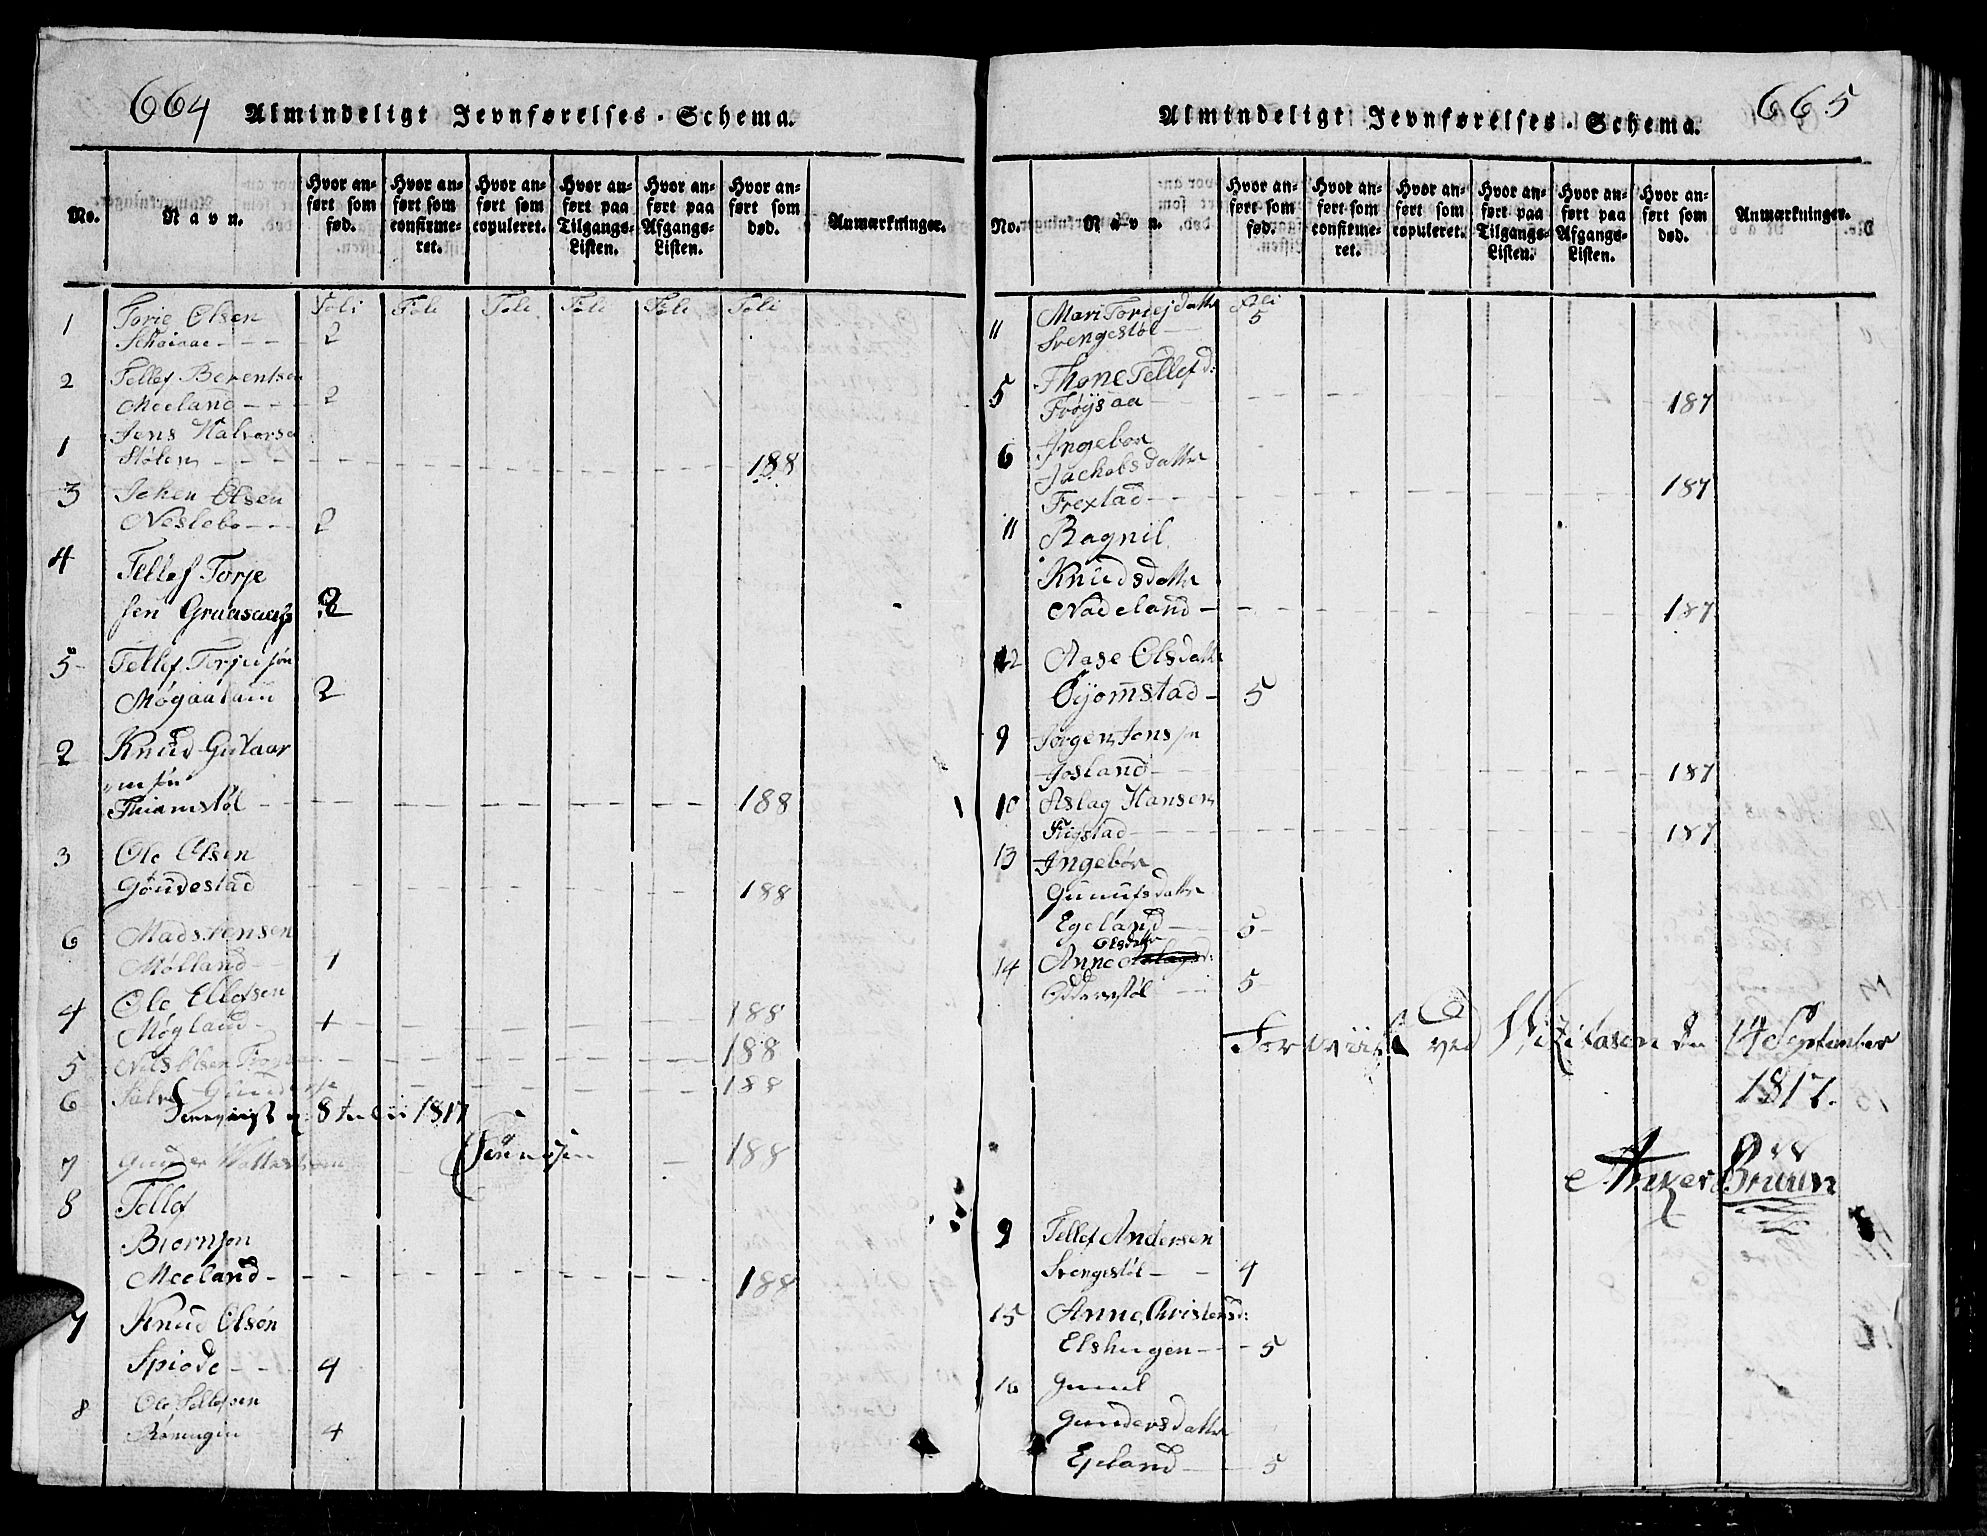 664 Almindeligt Jevnførelses-Schema.
No. Navn. Hvor anført som fød. Hvor anført som confirmeret. Hvor anført som copuleret. Hvor anført paa Tilgangs-Listen. Hvor anført paa Afgangs-Listen. Hvor anført som død. Anmærkninger.
Foli Foli Foli Foli Foli Foli
1 Torie Olsen
2
2 Tellef Berentsen
Meeland 2
1 Jens Halvorsen
Stølen 188
3 Johen Olsen
Neslebo 2
4 Tellef Torje
sen 2
5 Tellef Torjusøn
2
2 Knud Gutaar
msøn
Thiamstøl 188
3 Ole Olsen
Goudestad 188
6 Mads Jensen
Mølland 1
4 Ole Ellefsen
Møgland 1 188
5 Nels Olsen 188
6 188
8 Julii 1817
7 188
8 Tellef
Biornson
Meeland 188
7 Knud Olsøn
Spiode 4
8 Ole Tellefsen
4
665 Almindeligt Jevnførelses-Schema.
No. Navn. Hvor anført som fød. Hvor anført som confirmeret. Hvor anført som copuleret. Hvor anført paa Tilgangs-Listen. Hvor anført paa Afgangs-Listen. Hvor anført som død. Anmærkninger.
Foli
11 Mari Toriesdatter 5
Svengestøl
5 Thone Tellefd:
Frøysaa 187
6 Ingebor
Jachobsdatter
Frextad 187
11 Ragnil
Knudsdatter
Nadeland 187
12 Aase Olsdatter
5
9 Jørgen Jonssøn
Josland 187
10 Aslag Hansen
187
13 Ingebør
Gunufsdatter
Egeland 5
Olsdatter
14 Anne
5
ved Visitasen den 14 September
1817.
Anker Bruun
9 Tellef Andersen
Svengestøl 4
15 Anne Christensd:
Elshugen 5
16 Gunil
Gundersdatter
Egeland 5